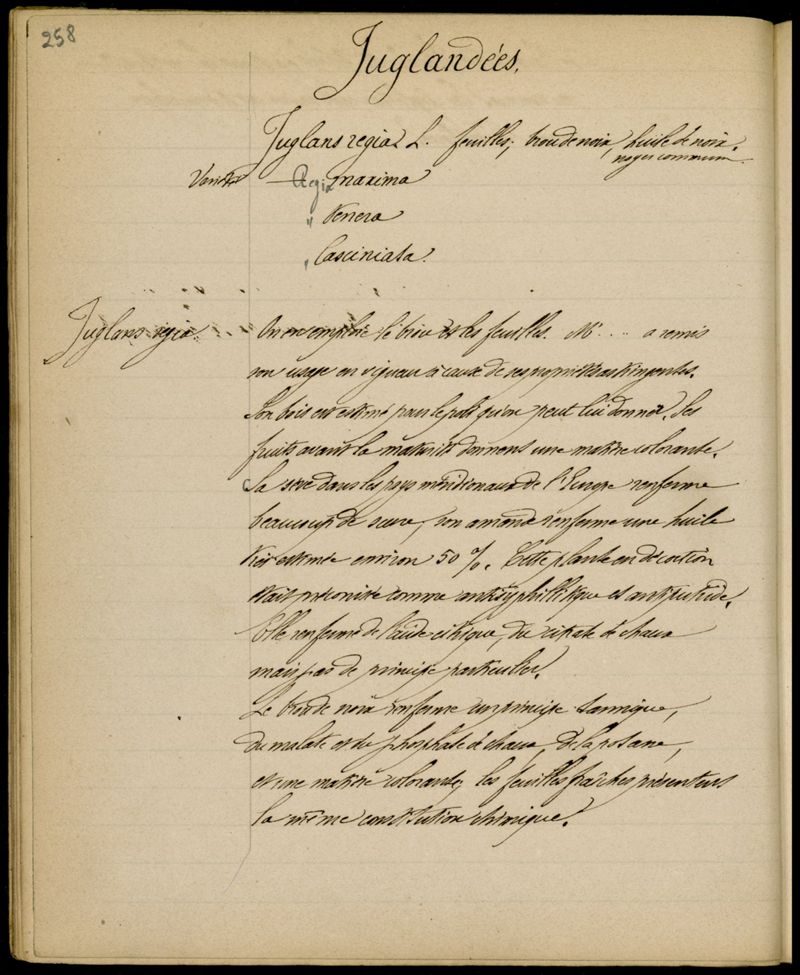 258
Juglandées.
Juglans regia L. feuilles, brou de noix, huile de noix.
noyer commun
Variétés — Regia maxima
" tenera
" Lasciniata.
Juglans regia. On en emploie le brou et les feuilles. Mr .... a remis
son usage en vigueur à cause de ses propriétés astringentes.
Son bois est estimé pour le poli qu'on peut lui donner. Ses
fruits avant la maturité donnent une matière colorante.
Sa sève dans les pays méridionaux de l'Europe renferme
beaucoup de sucre, son amande renferme une huile
très estimée environ 50 %. Cette plante en décoction
était préconisée comme antisyphilitique et antiputride.
Elle renferme de l'acide citrique, du citrate de chaux
mais pas de principe particulier.
Le brou de noix renferme un principe tannique,
du malate et du phosphate de chaux, de la potasse,
et une matière colorante, les feuilles fraîches présentent
la même constitution chimique.